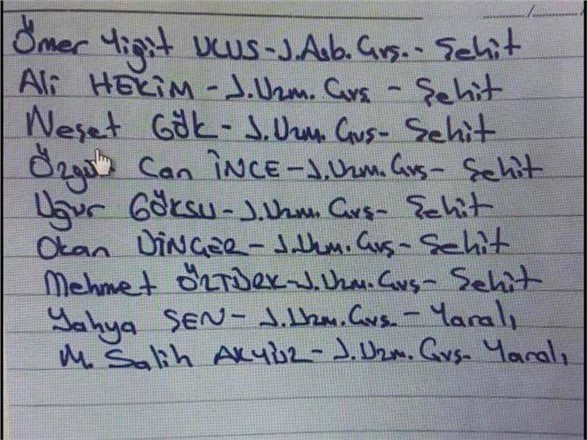 Ömer Yigit ULUS-J.Asb.Çvş.- Şehit
Ali HEKİM - J.Uzm. Çvş - Şehit
Neşet GÖK- J.Uzm. Çvş- Şehit
Can İNCE-J.Uzm.Çvş- Şehit
Uğur GÖKSU-J.Uzm. Çvş- Şehit
Okan DİNÇER-J.Uzm. Çvş- Şehit
Mehmet ÖZTÜRK-J.Uzm.Çvş- Şehit
Yahya ŞEN- J.Uzm.Çvş.- Yaralı
M. Salih AKYÜZ- J.Uzm. Çvş- Yaralı